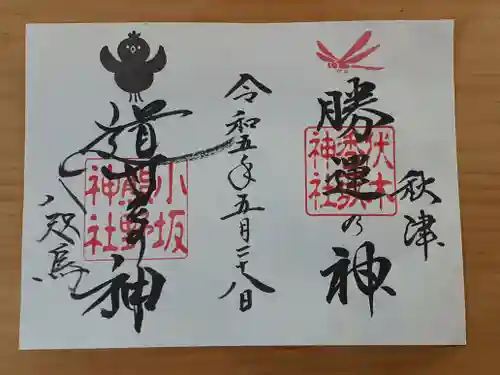 秋津
勝運の神
伏木
香取
神社
令和五年五月二十八日
導き神
小坂
熊野
神社
八咫烏